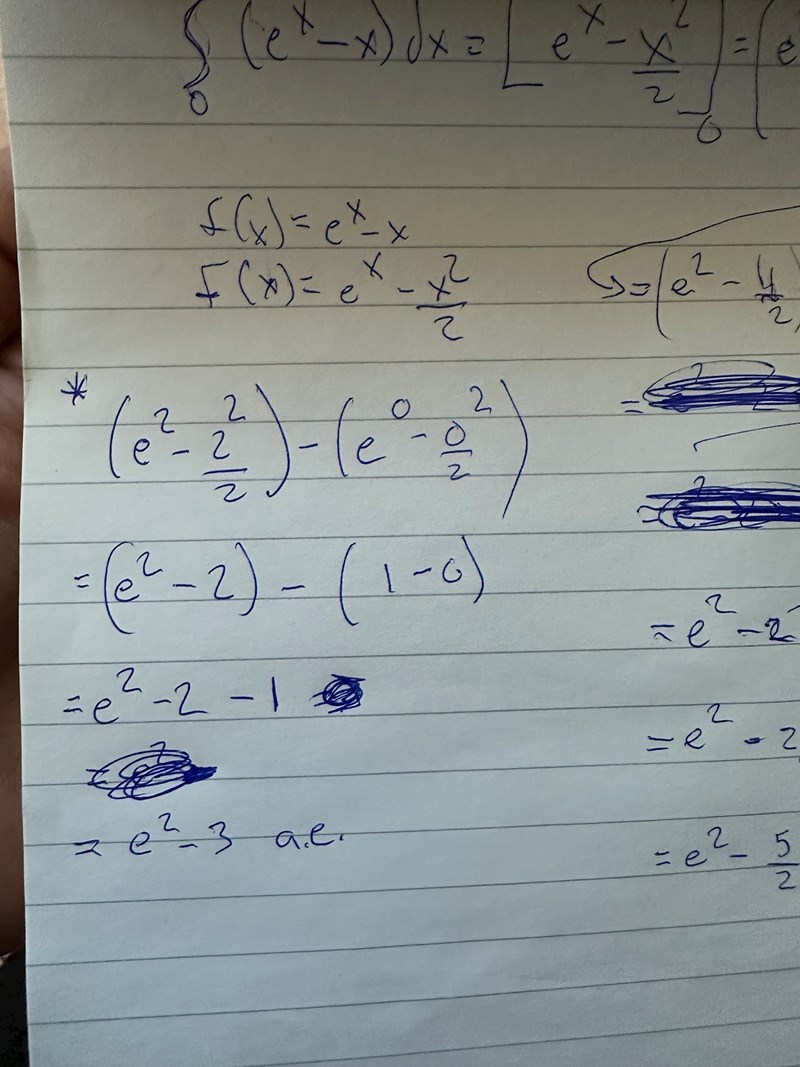 ∫₀ (eˣ - x) dx = [eˣ - x²/2]₀ = (e
f(x) = eˣ - x
F(x) = eˣ - x²/2
= (e² - 4/2)
* (e² - 2²/2) - (e⁰ - 0²/2)
=
= (e² - 2) - (1 - 0)
= e² - 2
= e² - 2 - 1
= e² - 2
= e² - 3 a.e.
= e² - 5/2